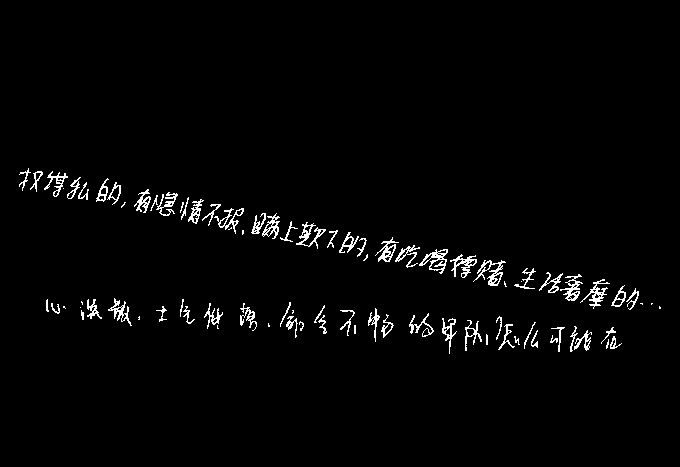 权谋私的,有隐情不报、瞒上欺下的,有吃喝嫖赌、生活奢靡的…
心涣散、士气低落、命令不畅的军队,怎么可能在